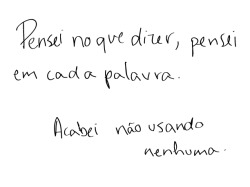 Pensei no que dizer, pensei
em cada palavra.
Acabei não usando
nenhuma.